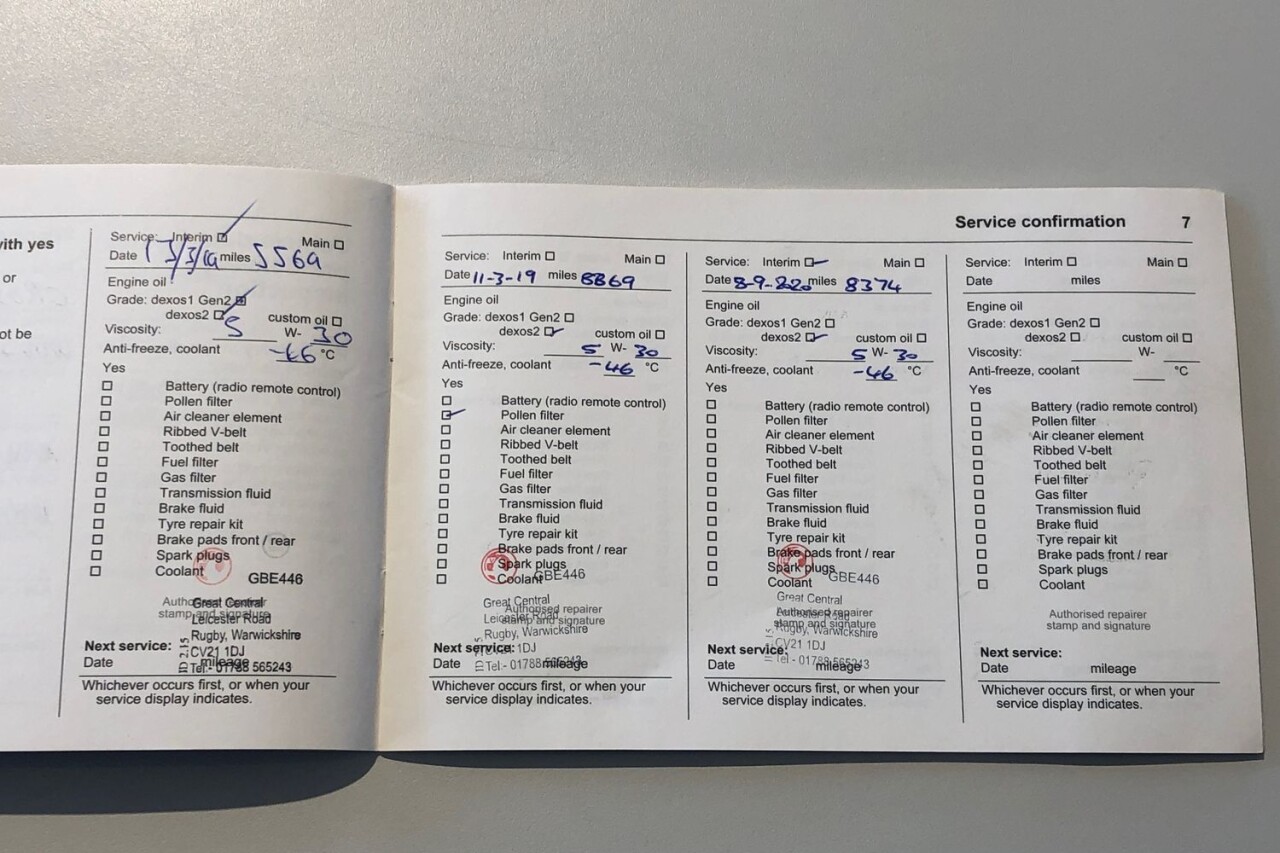 ith yes
or
ot be
Service: Interim Main
Date miles 5569
Engine oil
Grade: dexos1 Gen2
dexos2 custom oil
Viscosity: 5 W- 30
Anti-freeze, coolant -46 °C
Yes
Battery (radio remote control)
Pollen filter
Air cleaner element
Ribbed V-belt
Toothed belt
Fuel filter
Gas filter
Transmission fluid
Brake fluid
Tyre repair kit
Brake pads front / rear
Spark plugs
Coolant
GBE446
Great Central
stamp and signature
Leicester Road
Rugby, Warwickshire
Next service: CV21 1DJ
Date mileage
Tel:- 01788 565243
Whichever occurs first, or when your
service display indicates.
Service confirmation 7
Service: Interim Main
Date 11-3-19 miles 8869
Engine oil
Grade: dexos1 Gen2
dexos2 custom oil
Viscosity: 5 W- 30
Anti-freeze, coolant -46 °C
Yes
Battery (radio remote control)
Pollen filter
Air cleaner element
Ribbed V-belt
Toothed belt
Fuel filter
Gas filter
Transmission fluid
Brake fluid
Tyre repair kit
Brake pads front / rear
Spark plugs
Coolant
GBE446
Great Central
Authorised repairer
Leicester Road
stamp and signature
Rugby, Warwickshire
Next service: 1DJ
Date mileage
Tel:- 01788 565243
Whichever occurs first, or when your
service display indicates.
Service: Interim Main
Date 8-9-2020 miles 8374
Engine oil
Grade: dexos1 Gen2
dexos2 custom oil
Viscosity: 5 W- 30
Anti-freeze, coolant -46 °C
Yes
Battery (radio remote control)
Pollen filter
Air cleaner element
Ribbed V-belt
Toothed belt
Fuel filter
Gas filter
Transmission fluid
Brake fluid
Tyre repair kit
Brake pads front / rear
Spark plugs
Coolant
GBE446
Great Central
Authorised repairer
stamp and signature
Rugby, Warwickshire
Next service: CV21 1DJ
Date mileage
Tel:- 01788 565243
Whichever occurs first, or when your
service display indicates.
Service: Interim Main
Date miles
Engine oil
Grade: dexos1 Gen2
dexos2 custom oil
Viscosity: W-
Anti-freeze, coolant °C
Yes
Battery (radio remote control)
Pollen filter
Air cleaner element
Ribbed V-belt
Toothed belt
Fuel filter
Gas filter
Transmission fluid
Brake fluid
Tyre repair kit
Brake pads front / rear
Spark plugs
Coolant
Authorised repairer
stamp and signature
Next service:
Date mileage
Whichever occurs first, or when your
service display indicates.